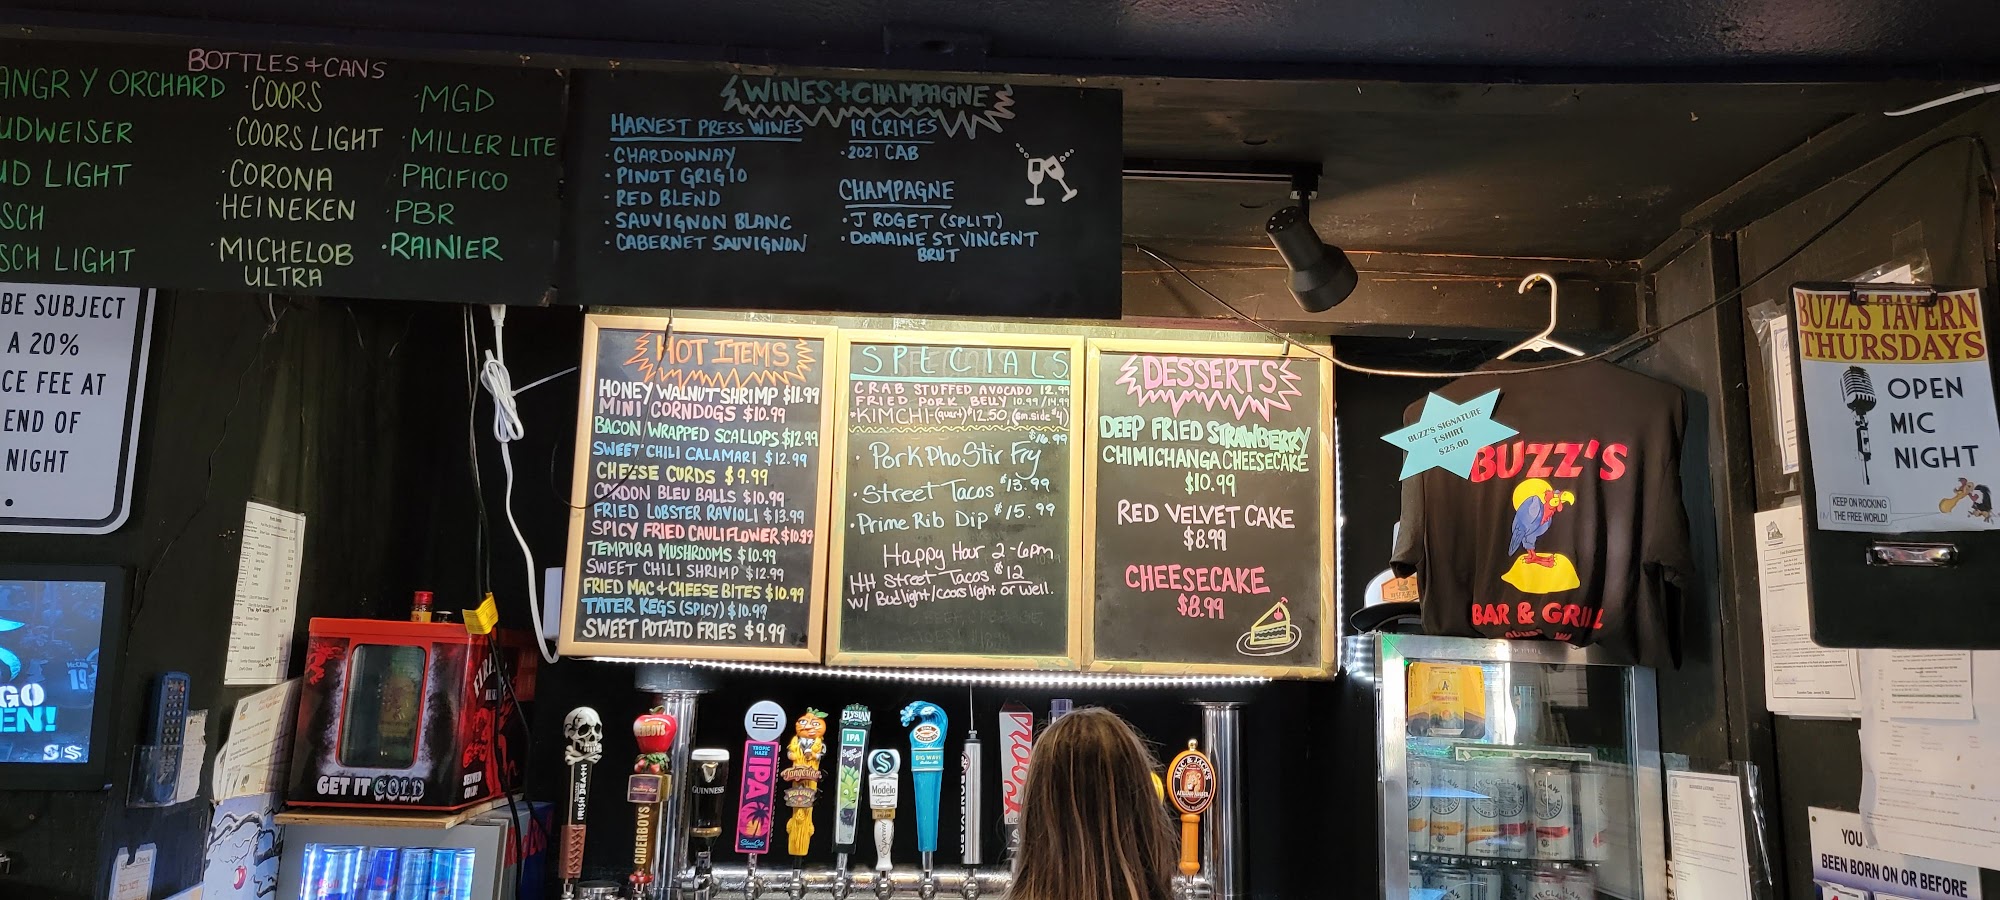 BOTTLES + CANS
ANGRY ORCHARD
UDWEISER
UD LIGHT
SCH
SCH LIGHT
· COORS
· COORS LIGHT
· CORONA
· HEINEKEN
· MICHELOB
ULTRA
· MGD
· MILLER LITE
· PACIFICO
· PBR
· RAINIER
WINES + CHAMPAGNE
HARVEST PRESS WINES
· CHARDONNAY
· PINOT GRIGIO
· RED BLEND
· SAUVIGNON BLANC
· CABERNET SAUVIGNON
19 CRIMES
· 2021 CAB
CHAMPAGNE
· J ROGET (SPLIT)
· DOMAINE ST VINCENT
BRUT
BE SUBJECT
A 20%
CE FEE AT
END OF
NIGHT
HOT ITEMS
HONEY WALNUT SHRIMP $11.99
MINI CORNDOGS $10.99
BACON WRAPPED SCALLOPS $12.99
SWEET CHILI CALAMARI $12.99
CHEESE CURDS $9.99
CORDON BLEU BALLS $10.99
FRIED LOBSTER RAVIOLI $13.99
SPICY FRIED CAULIFLOWER $10.99
TEMPURA MUSHROOMS $10.99
SWEET CHILI SHRIMP $12.99
FRIED MAC + CHEESE BITES $10.99
TATER KEGS (SPICY) $10.99
SWEET POTATO FRIES $9.99
SPECIALS
CRAB STUFFED AVOCADO 12.99
FRIED PORK BELLY 10.99/14.99
*KIMCHI-(quart) $12.50 (sm. side $4)
$16.99
· Pork Pho Stir Fry
· Street Tacos $13.99
· Prime Rib Dip $15.99
Happy Hour 2-6pm
HH Street Tacos $12
w/ Bud light/coors light or well.
DESSERTS
DEEP FRIED STRAWBERRY
CHIMICHANGA CHEESECAKE
$10.99
RED VELVET CAKE
$8.99
CHEESECAKE
$8.99
BUZZ'S SIGNATURE
T-SHIRT
$25.00
BUZZ'S
BAR & GRILL
BUZZ'S TAVERN
THURSDAYS
OPEN
MIC
NIGHT
KEEP ON ROCKING
THE FREE WORLD!
GO
EN!
GET IT COLD
IRISH DEATH
CIDERBOYS
GUINNESS
TROPIC
HAZE
IPA
ELYSIAN
IPA
Modelo
BIG WAVE
MAC & JACK'S
YOU
BEEN BORN ON OR BEFORE